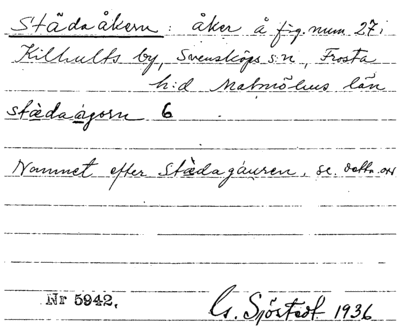 Städaåkern: åker å fig. num. 27 i
Kilhults by, Svensköps s:n, Frosta
h:d Malmöhus län
stèdaágorn 6
Namnet efter Stèdagáuren, se detta ord
Nr 5942.
G. Sjöstedt 1936